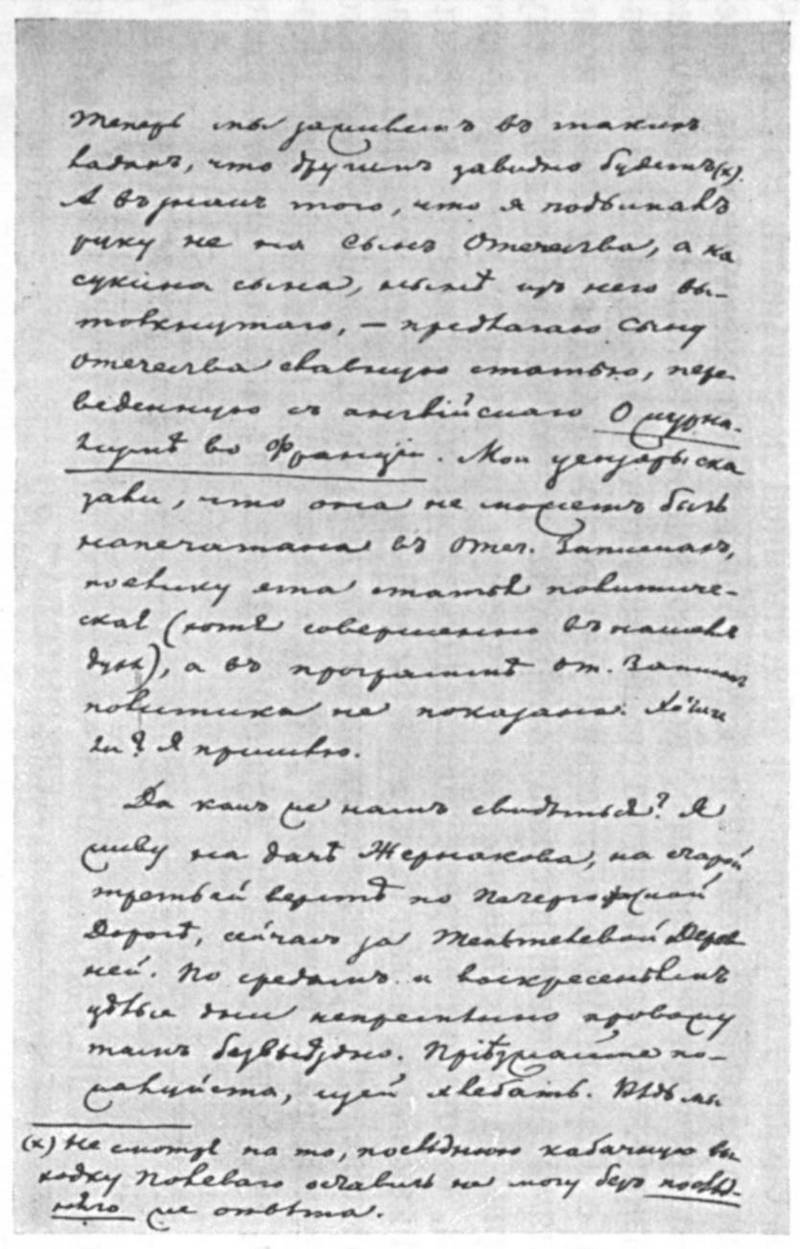 Теперь мы заживемъ въ такихъ
ладахъ, что другимъ завидно будетъ (х).
А въ знакъ того, что я подымалъ
руку не на Сынъ Отечества, а на
сукина сына, нынѣ изъ него вы-
толкнутаго, — предлагаю Сыну
Отечества славную статью, пере-
веденную съ англійскаго О журна-
лизмѣ во Франціи. Мои цензоры ска
зали, что она не можетъ быть
напечатана въ Отеч. Запискахъ,
поелику эта статья политиче-
ская (хотя совершенно въ нашемъ
духѣ), а въ программѣ От. Записокъ
политика не показана. Хочешь
ли? Я пришлю.
Да какъ же намъ свидѣться? Я
живу на дачѣ Жернакова, на старой
третьей верстѣ по Петергофской
Дорогѣ, сейчасъ за Тентелевой Дерев
ней. По средамъ и воскресеньямъ
цѣлые дни непремѣнно провожу
тамъ безвыѣздно. Пріѣзжайте по-
жалуйста, щей хлебать. Вѣдь мы
(х) Не смотря на то, послѣднюю кабачную вы
ходку Полеваго оставить не могу безъ послѣд-
няго же отвѣта.